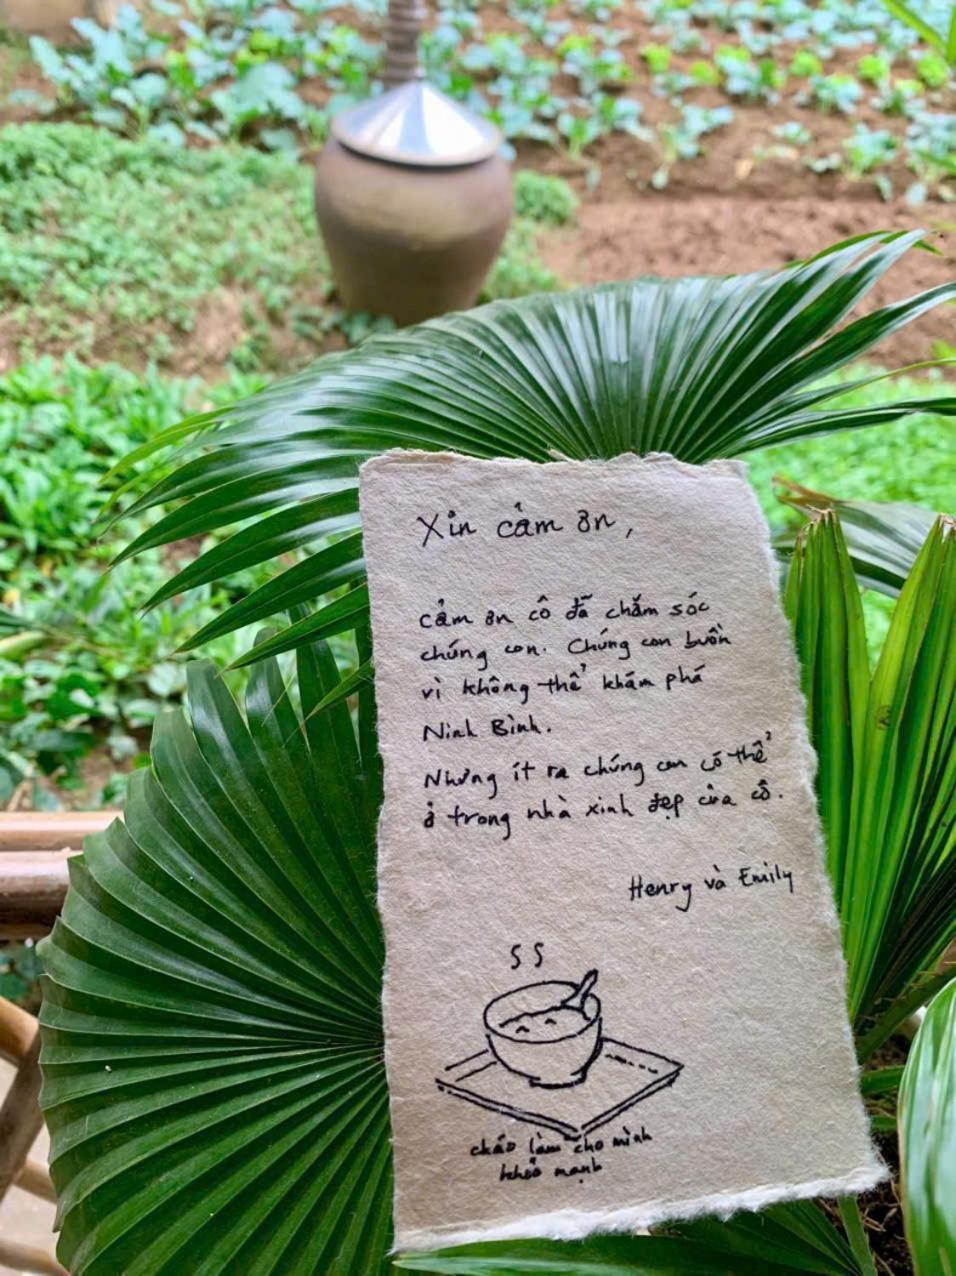 Xin cảm ơn,
cảm ơn cô đã chăm sóc
chúng con. Chúng con buồn
vì không thể khám phá
Ninh Bình.
Nhưng ít ra chúng con có thể
ở trong nhà xinh đẹp của cô.
Henry và Emily
cháo làm cho mình
khỏe mạnh